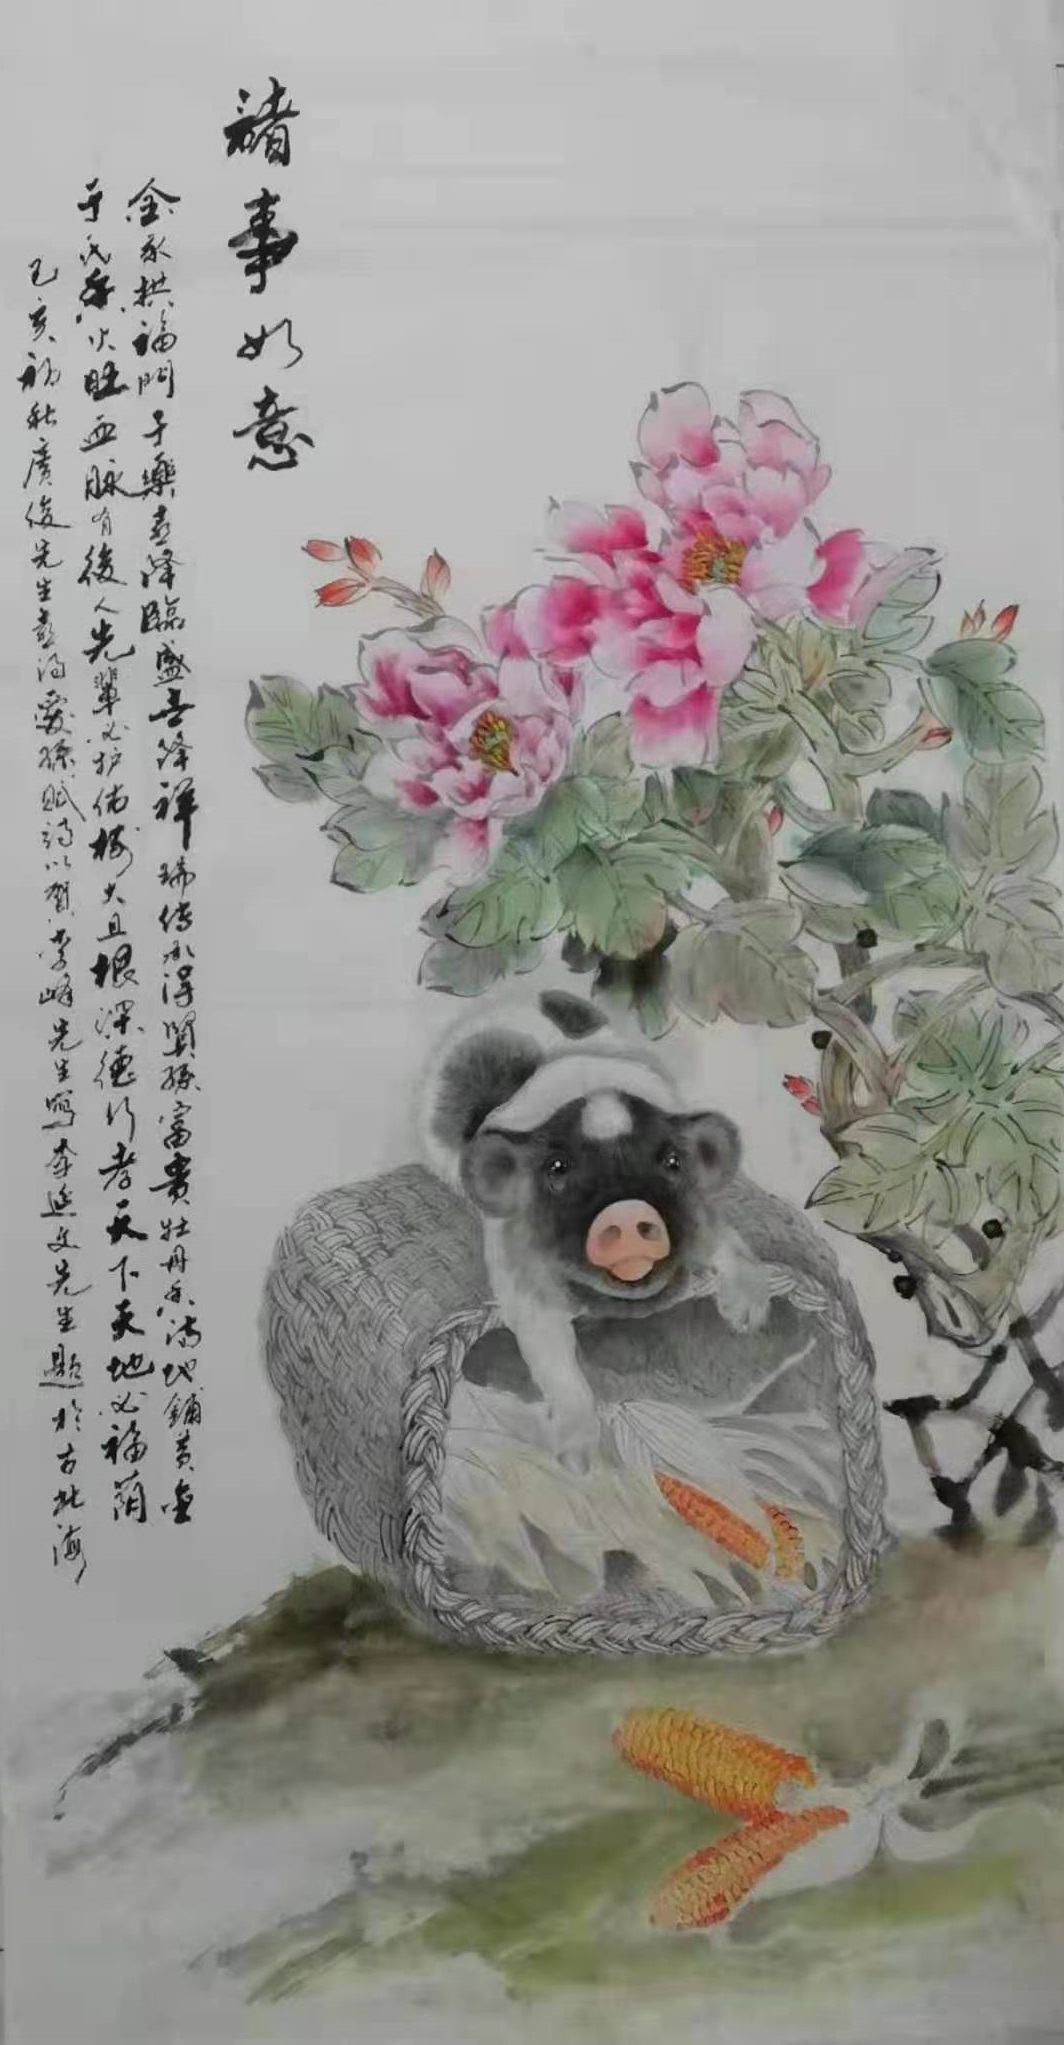 諸事如意
金豕拱福門子藥喜降臨盛世降祥瑞傳承得賢孫富貴牡丹香滿地鋪黃金
于氏香火旺血脉有後人先輩必护佑樹大且根深德行孝天下天地必福蔭
己亥初秋廣俊先生喜得愛孫賦詩以賀李峰先生寫李延文先生題於古北海